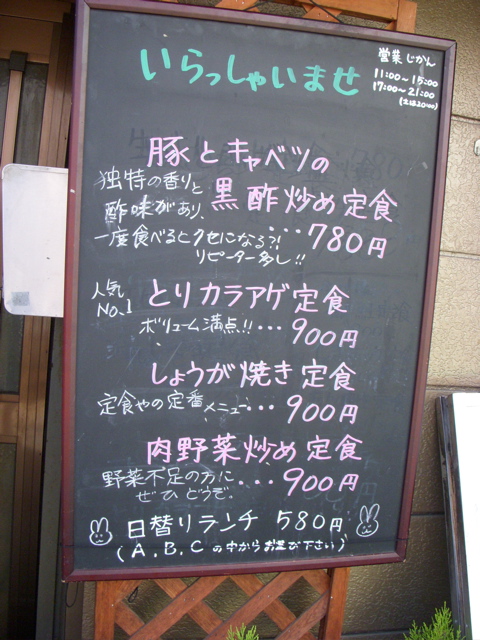 いらっしゃいませ
営業じかん
11:00～15:00
17:00～21:00
豚とキャベツの
黒酢炒め定食
独特の香りと
酢味があり、
一度食べるとクセになる?!
リピーター多し!!
・・・780円
人気
No.1
とりカラアゲ定食
ボリューム満点!!・・・900円
しょうが焼き定食
定食やの定番メニュー・・・900円
肉野菜炒め定食
野菜不足の方に
ぜひどうぞ。・・・900円
日替りランチ 580円
(A.B.Cの中からお選び下さい)